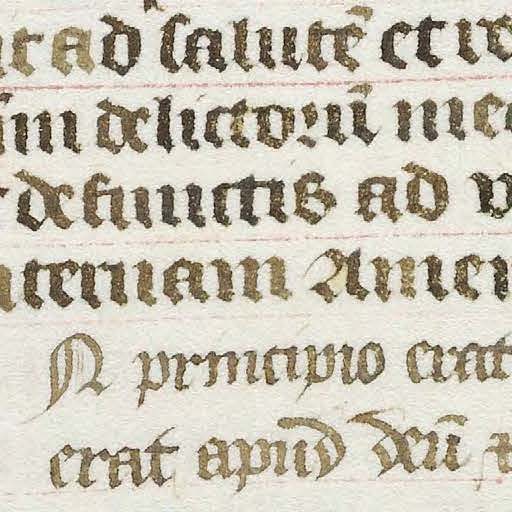 ad salutē et re
im delictoꝝ meo
defunctis ad v
aeternam Amen
N principio erat
erat apud deū ⁊